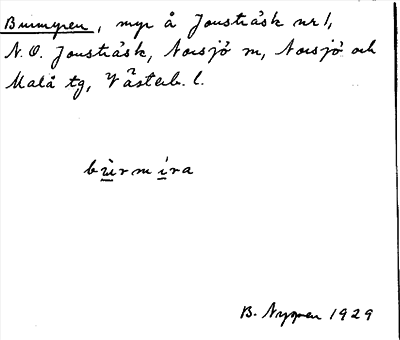 Burmyren, myr å Jonsträsk nr 1,
N.O. Jonsträsk, Norsjö sn, Norsjö och
Malå tg, Västerb. l.
bu̲rmi̲ra
B. Nygren 1929